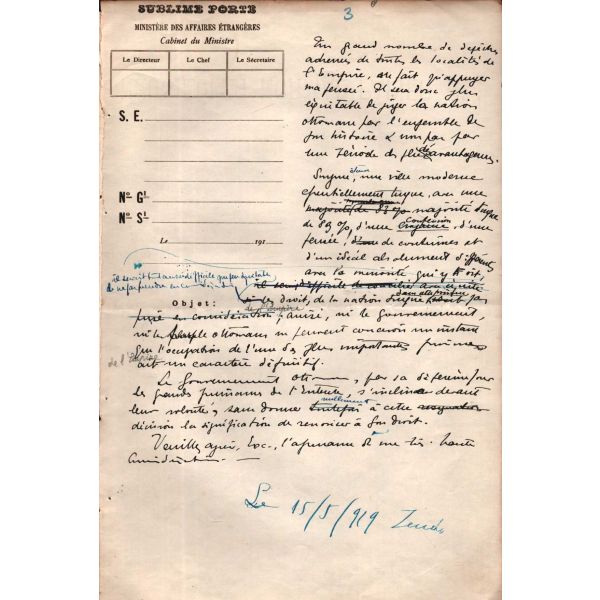 SUBLIME PORTE
MINISTÈRE DES AFFAIRES ÉTRANGÈRES
Cabinet du Ministre
Le Directeur Le Chef Le Sécretaire
S. E.
No. Gl.
No. Sl.
Le 191
Objet:
3
Un grand nombre de dépêches
adressées de toutes les localités de
l'Empire, ne fait qu'appuyer
ma pensée. Il sera donc plus
équitable de juger la nation
ottomane par l'ensemble de
son histoire & non pas par
une période des plus désavantageuses.
Smyrne, une ville moderne
essentiellement turque, avec une
majorité de 83% majorité turque
de 83%, d'une confession, d'une
pensée, de coutumes et
d'un idéal absolument différents
avec la minorité qui y
il serait
le droit, de la nation
pris en considération; aussi, ni le Gouvernement,
de l'Empire
ni le peuple ottomans ne peuvent concevoir un instant
que l'occupation de l'une des plus importantes provinces
ait un caractère définitif.
Le Gouvernement Ottoman, par sa déférence pour
les grandes puissances de l'Entente, s'incline devant
leur volonté, sans donner nullement à cette
décision la signification de renoncer à son droit.
Veuillez agréer, Exc., l'assurance de ma très haute
considération
Le 15/5/919